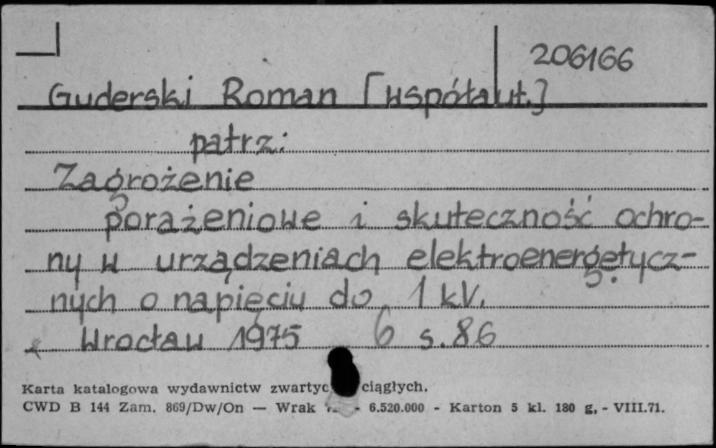 206166
Guderski Roman [współaut.]
patrz:
Zagrożenie
porażeniowe i skuteczność ochro-
ny w urządzeniach elektroenergetycz-
nych o napięciu do 1 kV.
Wrocław 1975 6 s. 86
Karta katalogowa wydawnictw zwartyc ciągłych.
CWD B 144 Zam. 869/Dw/On — Wrak - 6.520.000 - Karton 5 kl. 180 g, - VIII.71.